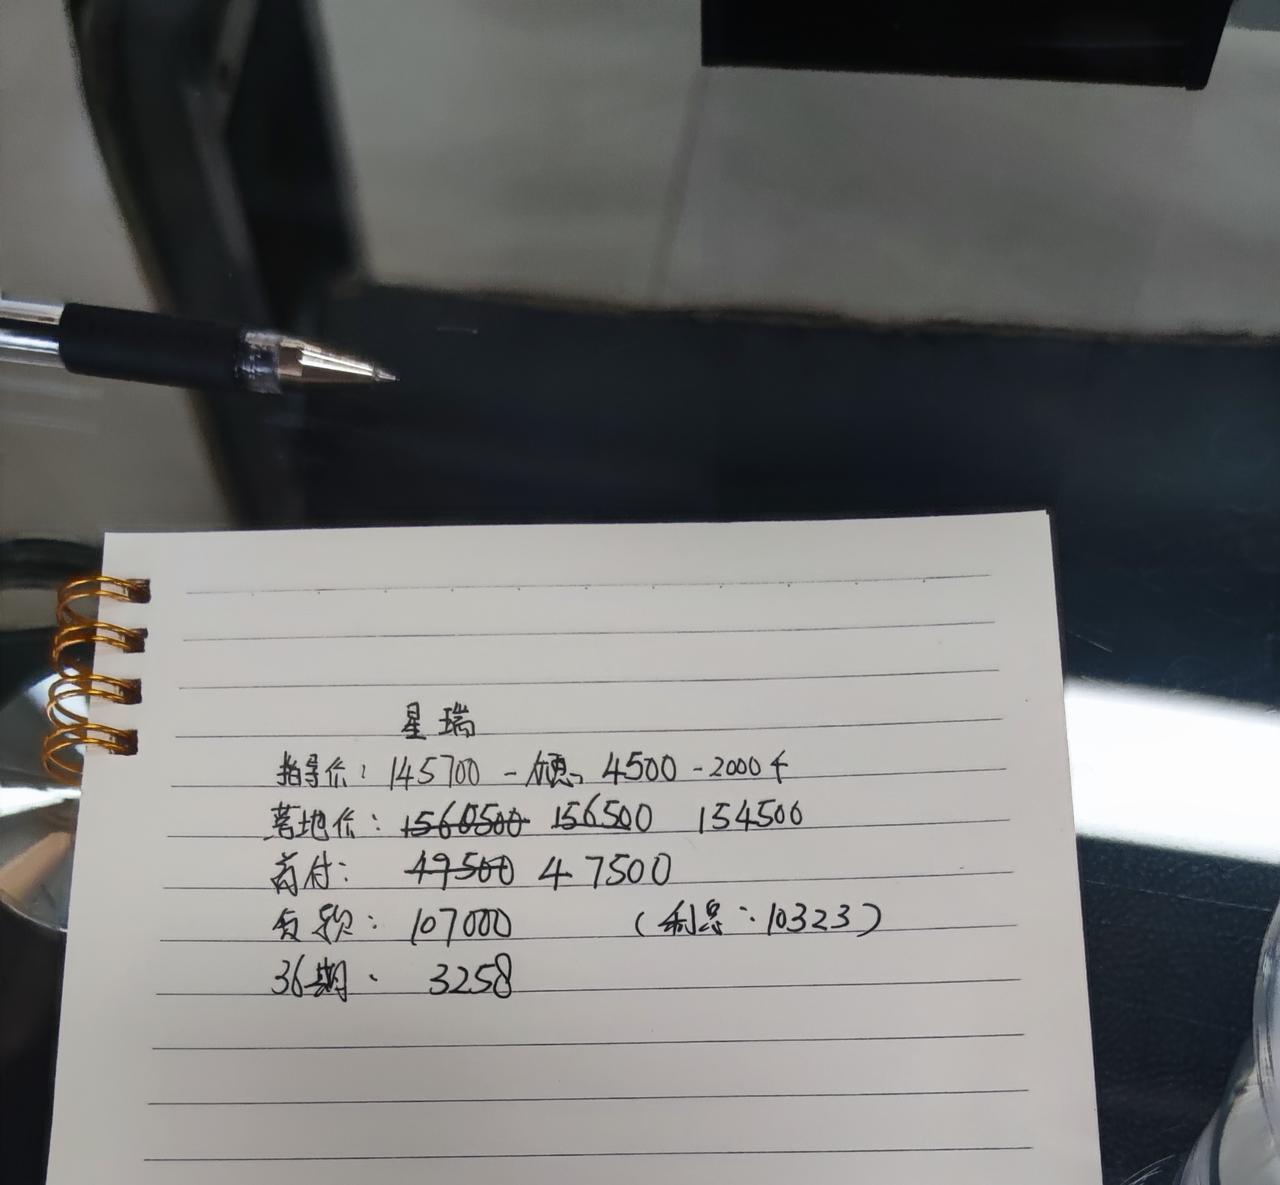 星瑞
指导价：145700 - 优惠 4500 - 2000
落地价：1560500 156500 154500
首付：49500 47500
贷款：107000 （利息：10323）
36期： 3258